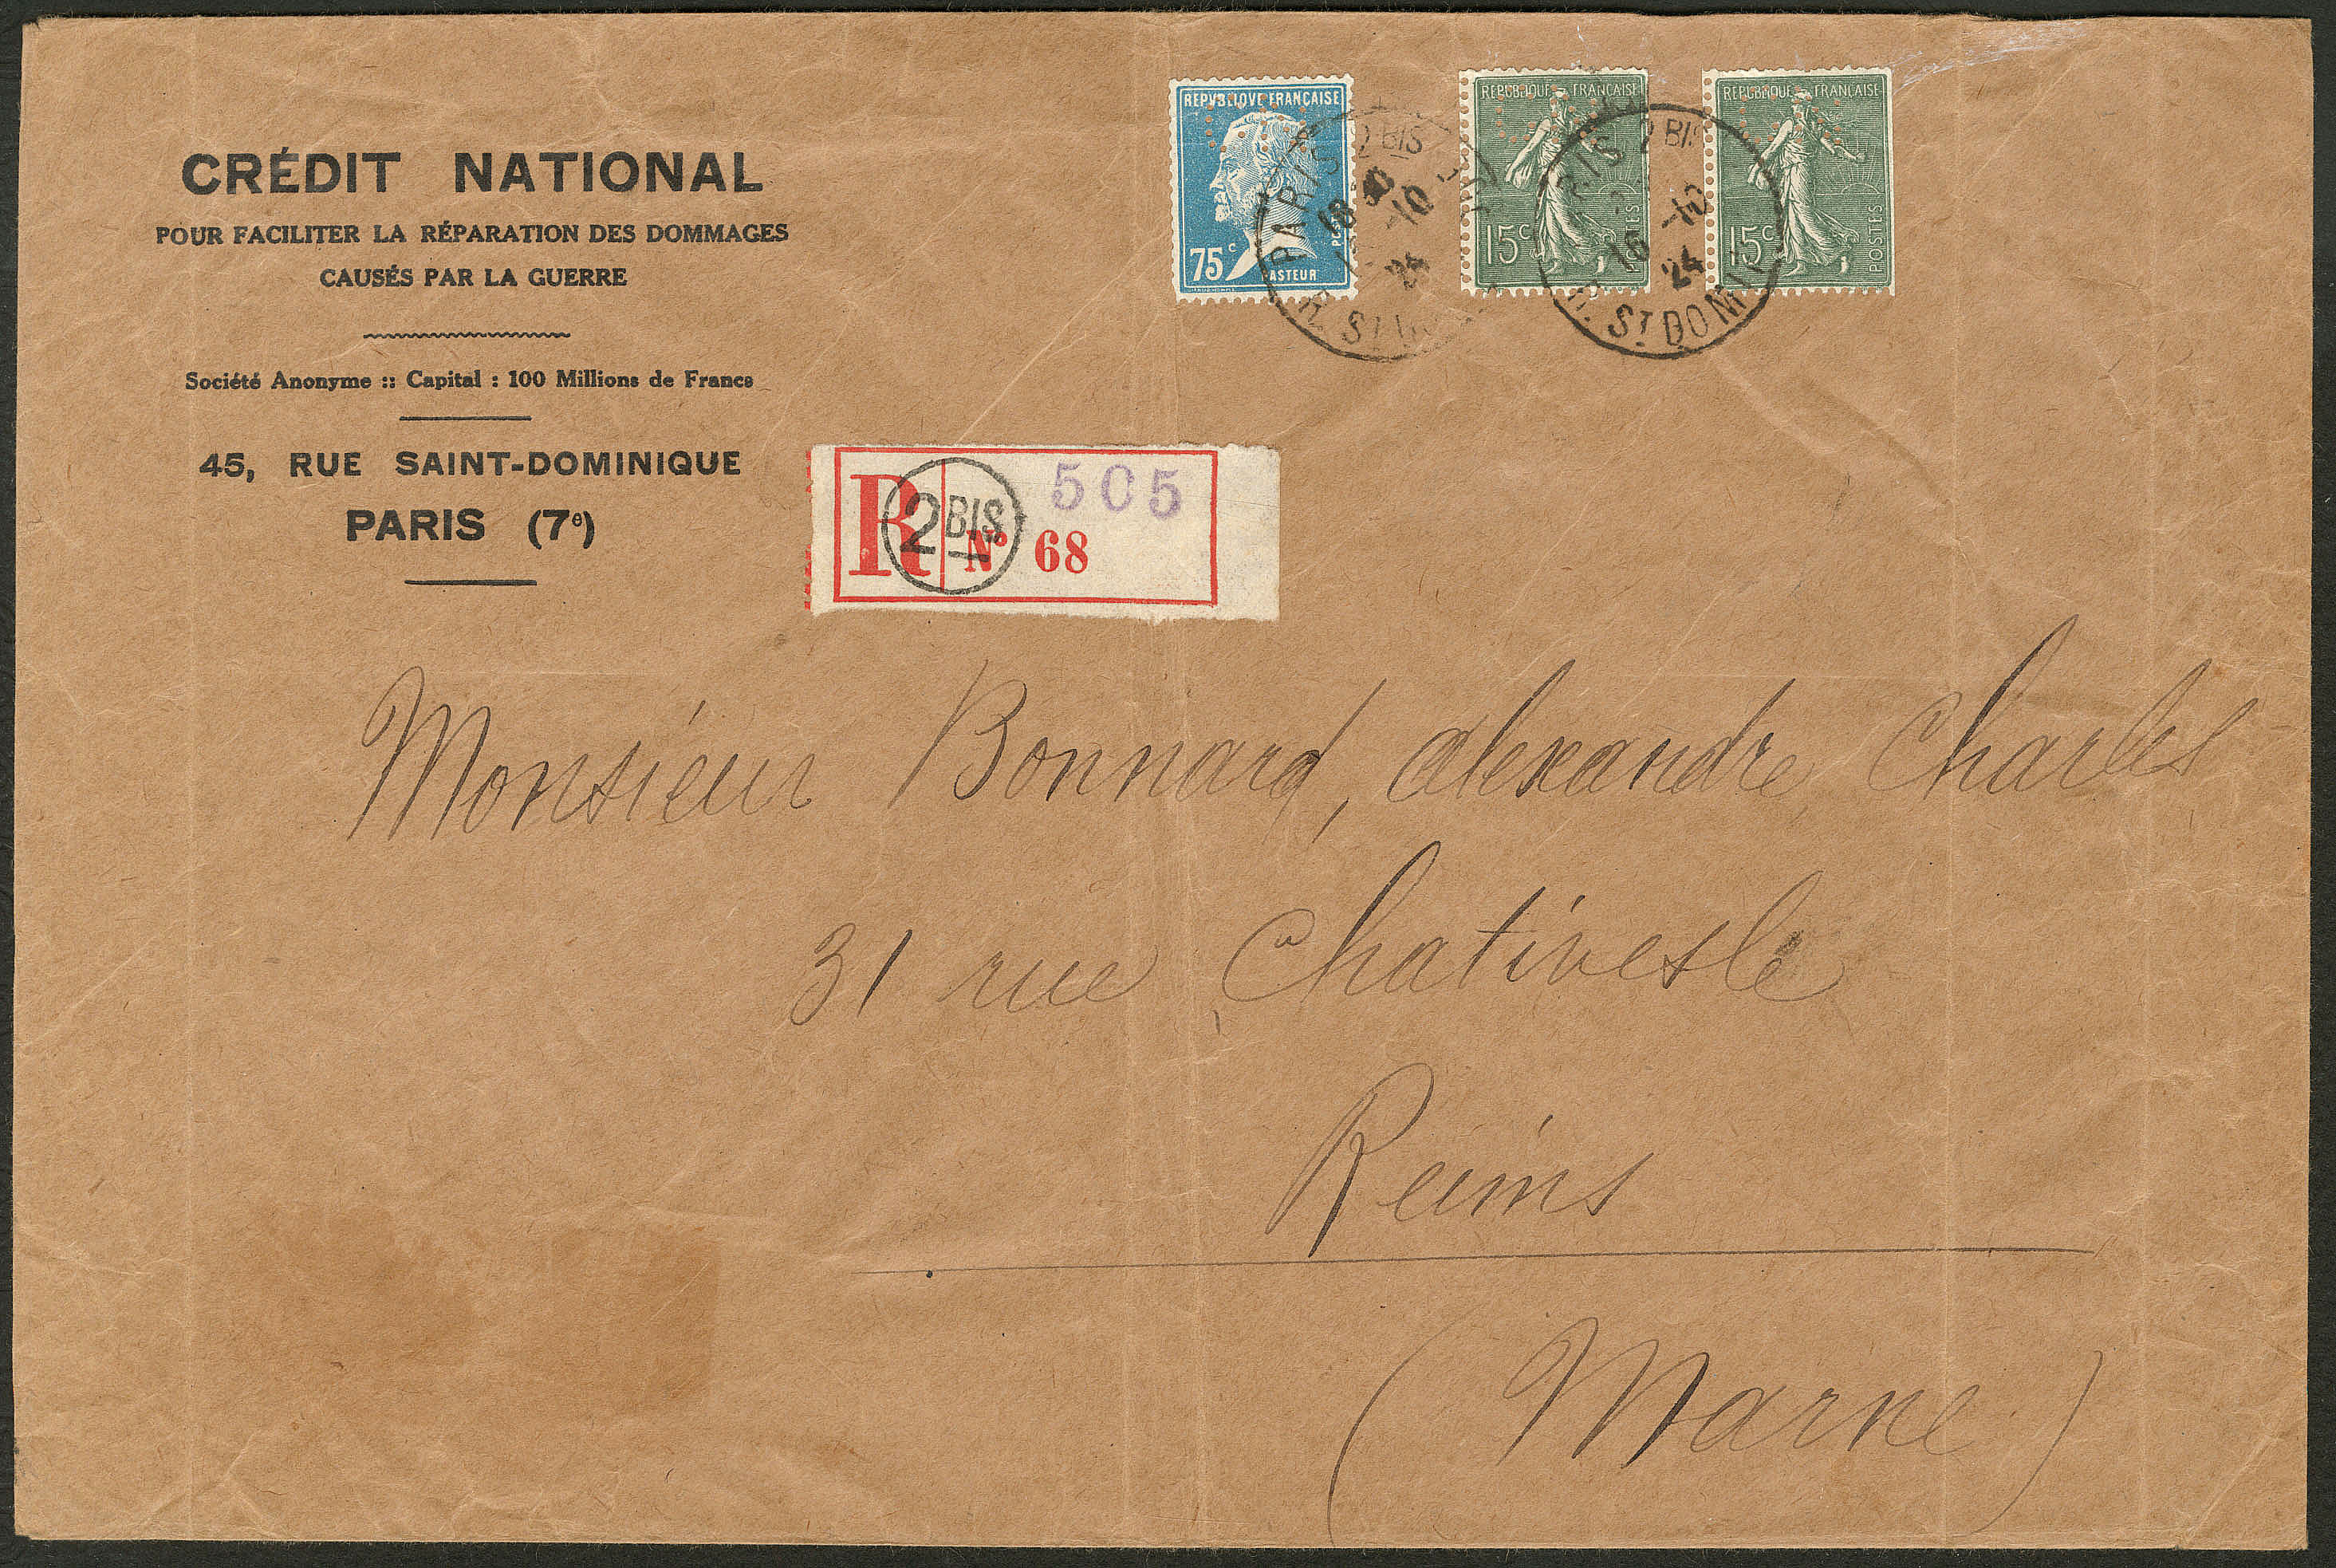 CRÉDIT NATIONAL
POUR FACILITER LA RÉPARATION DES DOMMAGES
CAUSÉS PAR LA GUERRE
Société Anonyme :: Capital : 100 Millions de Francs
45, RUE SAINT-DOMINIQUE
PARIS (7e)
REPVBLIQVE FRANÇAISE
75c
PASTEUR
REPUBLIQUE FRANÇAISE
15c
POSTES
REPUBLIQUE FRANÇAISE
15c
POSTES
PARIS 2 BIS
-10
24
R. ST
RIS 2 BIS
16 -10
24
R. ST DOMI
R 2 BIS 505
No 68
Monsieur Bonnard, alexandre Charles
31 rue Chativesle
Reims
(Marne)